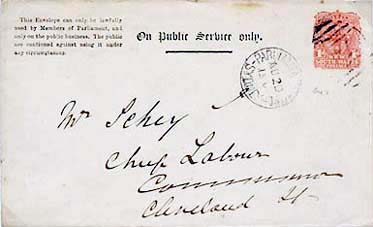 This Envelope can only be lawfully
used by Members of Parliament, and
only on the public business. The public
are cautioned against using it under
any circumstances.
On Public Service only.
PARLIAMENT
AU 20
SOUTH WALES
Mr Schey
Chief Labour
Commissioner
Cleveland St